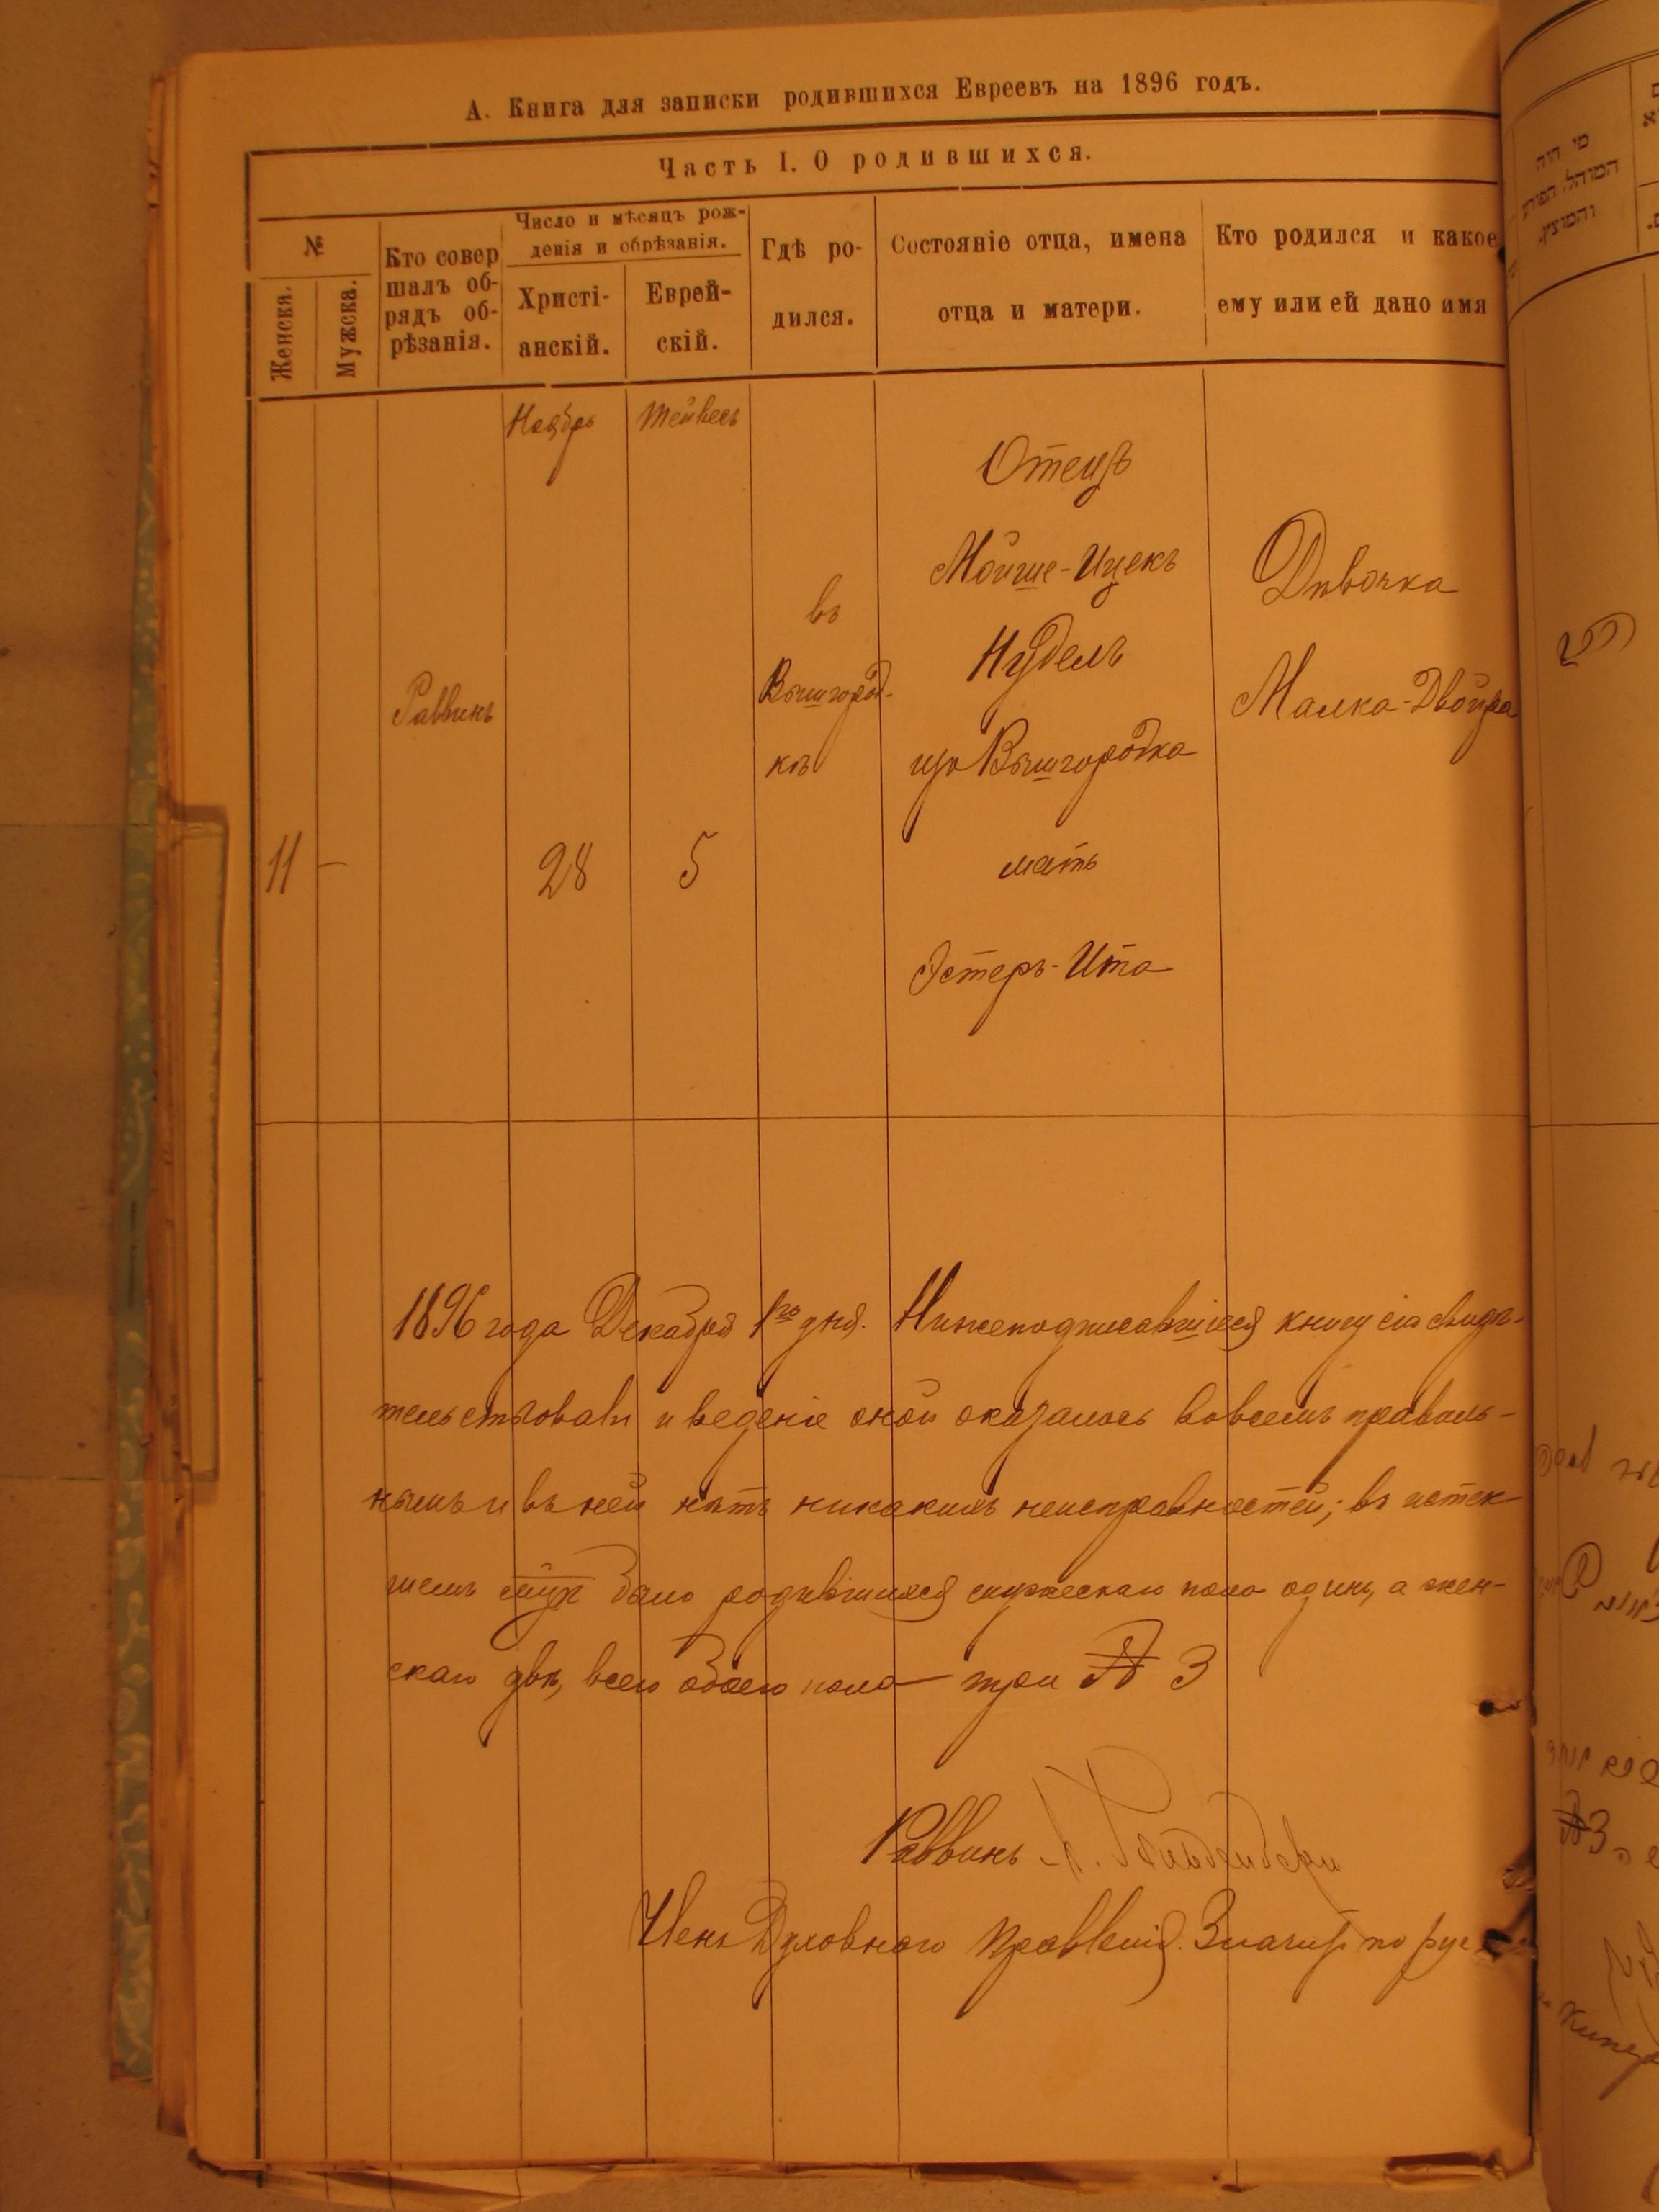 А. Книга для записки родившихся Евреевъ на 1896 годъ.
Часть I. О родившихся.
№
Женска.
Мужска.
Кто совер
шалъ об-
рядъ об-
рѣзанія.
Число и мѣсяцъ рож-
денія и обрѣзанія.
Христі-
анскій.
Еврей-
скій.
Гдѣ ро-
дился.
Состояніе отца, имена
отца и матери.
Кто родился и какое
ему или ей дано имя
מי היה
המוהל, הפורע
והמוצץ.
Ноябрь
Тейвесъ
11
—
Раввинъ
28
5
въ
Вышгород-
кѣ
Отецъ
Мойше-Ицекъ
Нудель
Вышгородка
мать
Эстеръ-Ита
Дѣвочка
Малка-Двойра
1896 года Декабря 1го дня. Нижеподписавшіеся книгу сію свидѣ-
тельствовали и веденіе оной оказалось вовсемъ правиль-
нымъ и въ ней нѣтъ никакихъ неисправностей; въ истек-
шемъ было родившихся мужескаго пола одинъ, а жен-
скаго двѣ, всего обоего пола три № 3
Раввинъ
Членъ Духовнаго Правленія.